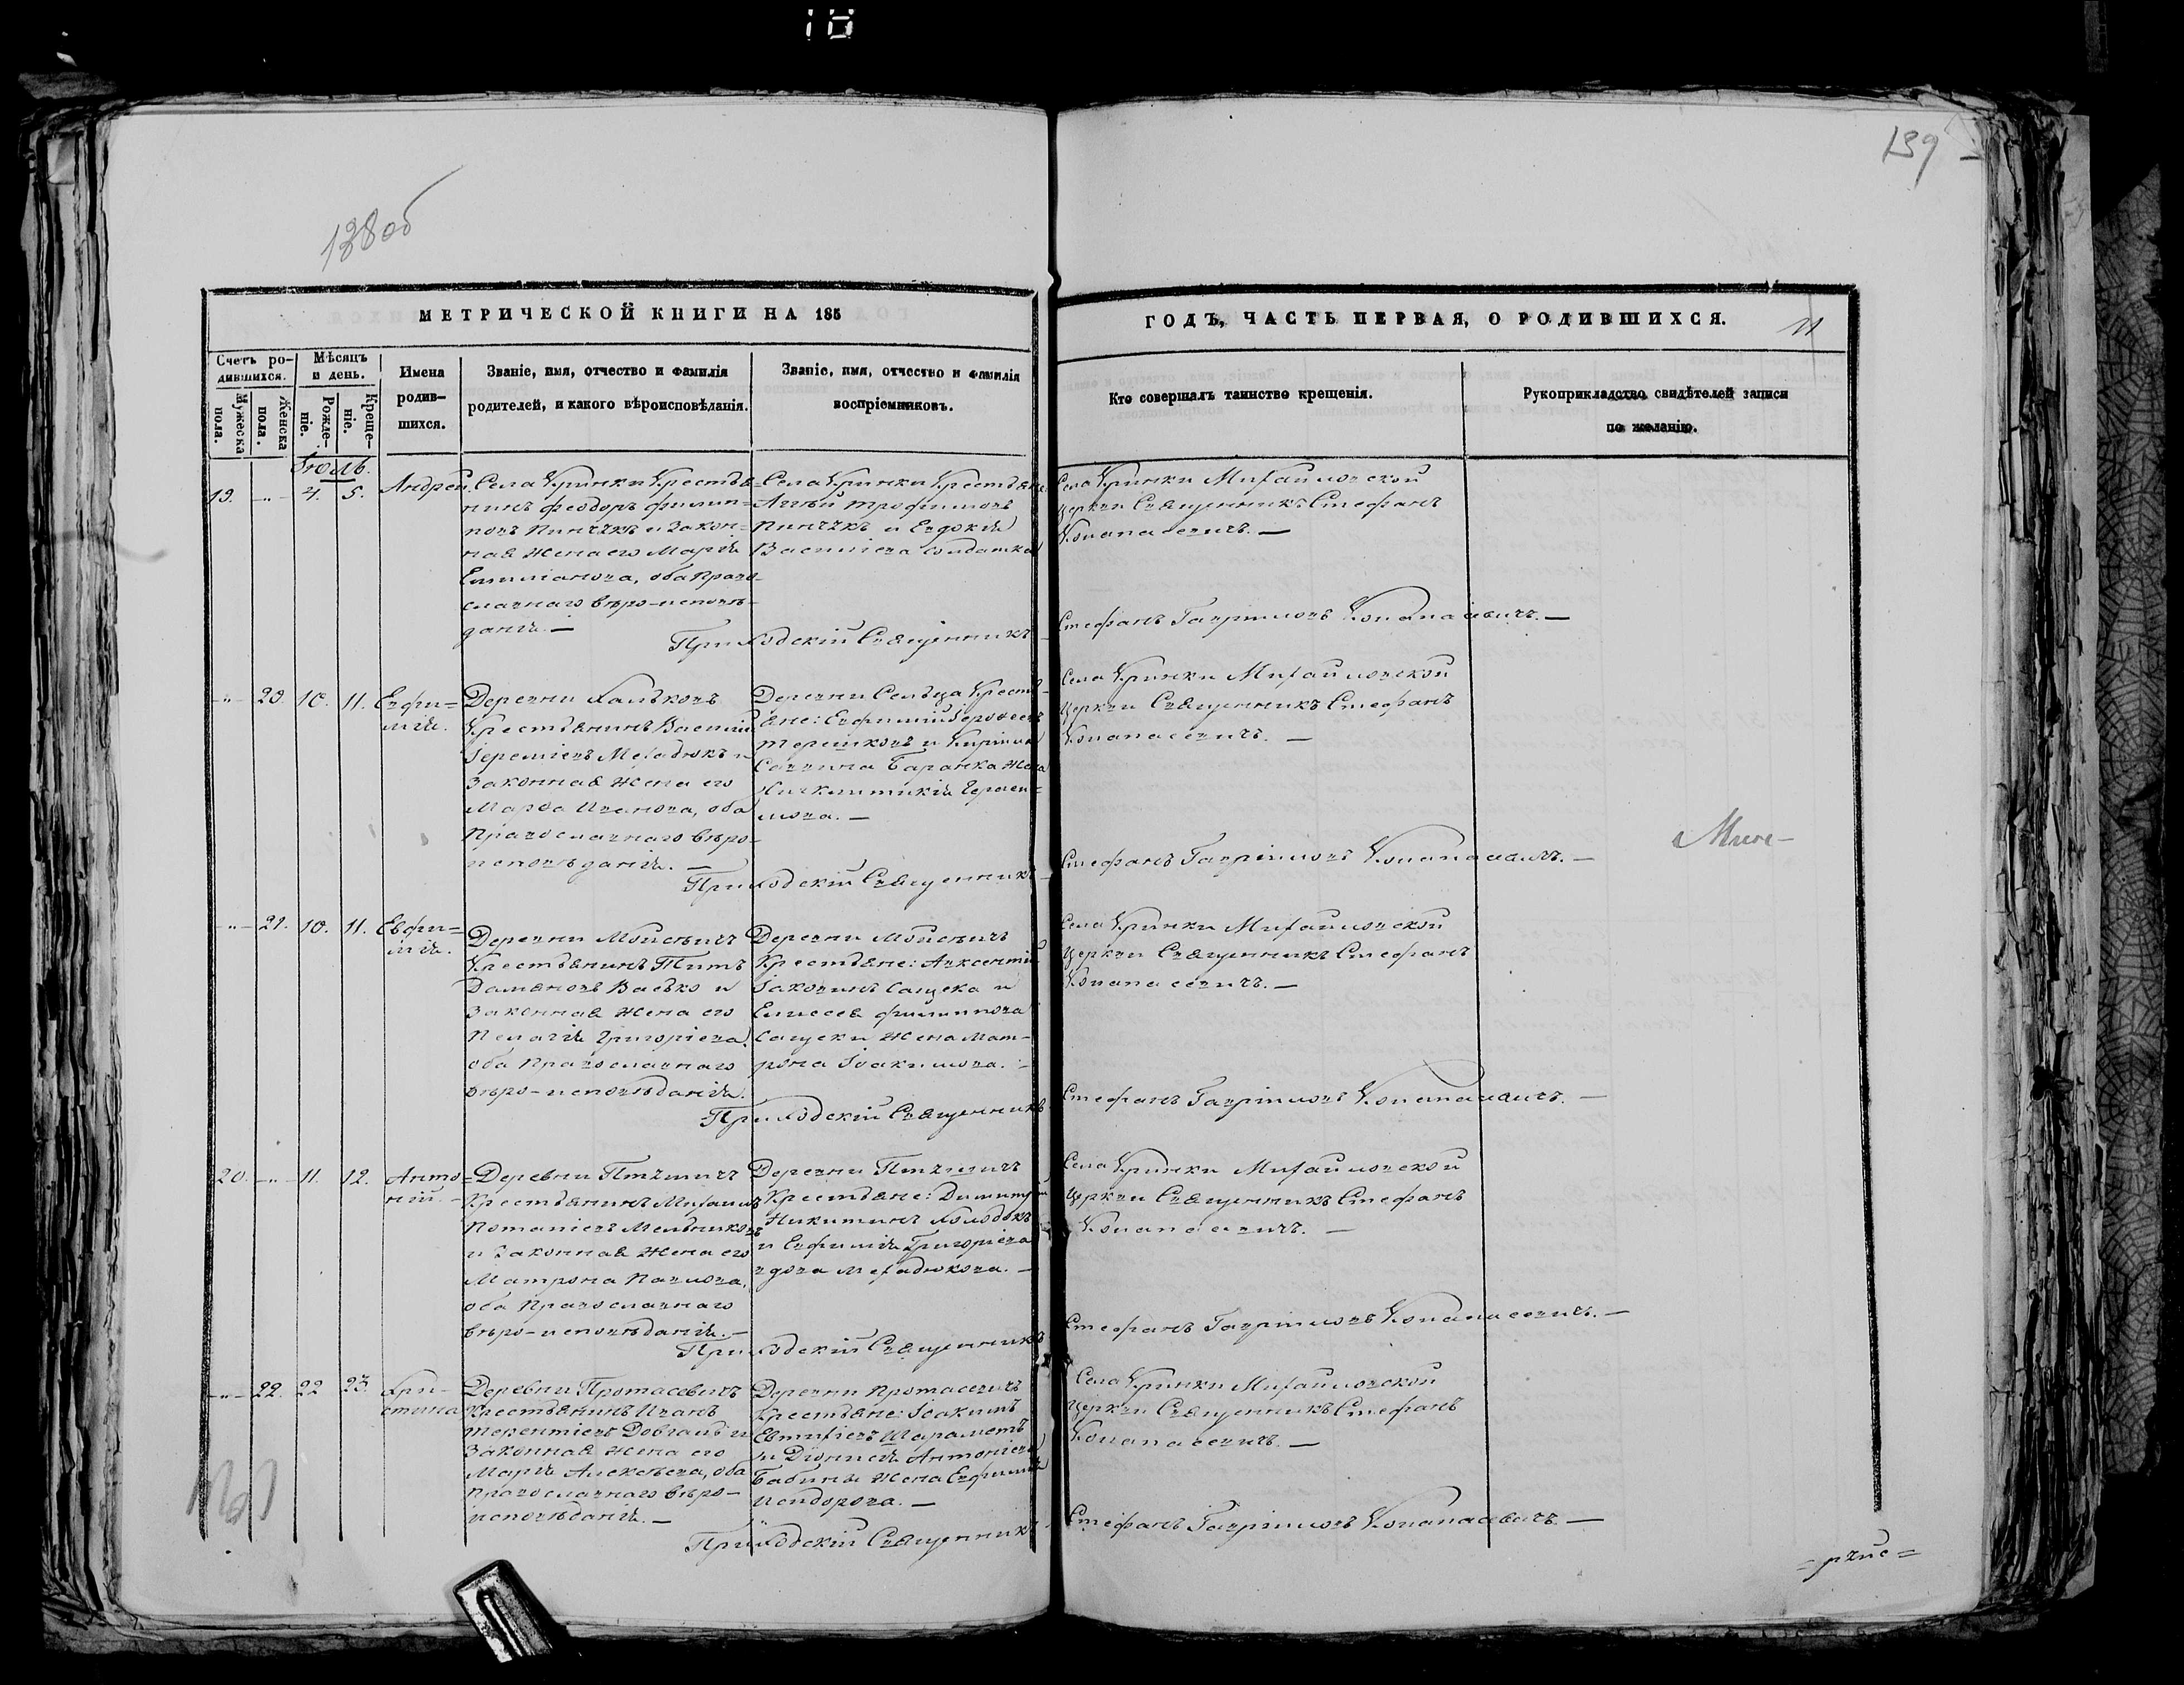 138 об
139
МЕТРИЧЕСКОЙ КНИГИ НА 185
ГОДЪ, ЧАСТЬ ПЕРВАЯ, О РОДИВШИХСЯ.
11
Счетъ ро-
дившихся.
Мужеска
пола.
Женска
пола.
Мѣсяцъ
и день.
Рожде-
ніе.
Креще-
ніе.
Имена
родив-
шихся.
Званіе, имя, отчество и фамилія
родителей, и какого вѣроисповѣданія.
Званіе, имя, отчество и фамилія
воспріемниковъ.
Кто совершалъ таинство крещенія.
Рукоприкладство свидѣтелей записи
по желанію.
Іюль.
19. -„- 4. 5. Андрей.
Села Кринки Крестья-
нинъ Феодоръ Филип-
повъ Пинчукъ и закон-
ная жена его Марія
Емиліанова, оба Право-
славнаго вѣро-исповѣ-
данія. —
Села Кринки Крестьяне
Аггѣй Трофимовъ
Пинчукъ и Евдокія
Василіева солдатка
Села Кринки Михайловской
церкви Священникъ Стефанъ
Конапасевичъ. —
Приходскій Священникъ Стефанъ Гавріиловъ Конапасевичъ. —
-„- 20. 10. 11. Евфи=
мія.
Деревни Хальковъ
Крестьянинъ Василій
Іереміевъ Мехадюкъ и
законная жена его
Марѳа Иванова, оба
Православнаго вѣро-
исповѣданія. —
Деревни Сельца Кресть-
яне: Евфимій
Терешковъ и Кирилла
Саввина Баранка жена
Гераси=
мова. —
Села Кринки Михайловской
церкви Священникъ Стефанъ
Конапасевичъ. —
Приходскій Священникъ Стефанъ Гавріиловъ Конапасевичъ. —
-„- 21. 10. 11. Евфи=
мія.
Деревни Мойсѣичъ
Крестьянинъ Титъ
Даміановъ Васько и
законная жена его
Пелагія Григоріева,
оба Православнаго
вѣро-исповѣданія.
Деревни Мойсѣичъ
Крестьяне: Авксентій
Іаковинъ Сащека и
Елисея Филиппова
Сащеки жена Мат-
рона Іоакимова. -
Села Кринки Михайловской
церкви Священникъ Стефанъ
Конапасевичъ. —
Приходскій Священникъ Стефанъ Гавріиловъ Конапасевичъ. —
20. -„- 11. 12. Анто=
ній. -
Деревни Птушичъ
Крестьянинъ Михаилъ
Потапіевъ Мельниковъ
и законная жена его
Матрона Павлова,
оба Православнаго
вѣро-исповѣданія. —
Деревни Птушичъ
Крестьяне: Димитрій
Никитинъ Холодокъ
и Евфимія Григоріева
вдова Мехадюкова. —
Села Кринки Михайловской
церкви Священникъ Стефанъ
Конапасевичъ. —
Приходскій Священникъ Стефанъ Гавріиловъ Конапасевичъ. —
-„- 22. 22 23. Хри-
стина
Деревни Протасевичъ
Крестьянинъ Иванъ
Терентіевъ Довгань и
законная жена его
Марія Алексѣева, оба
Православнаго вѣро-
исповѣданія. —
Деревни Протасевичъ
Крестьяне: Іоакимъ
Евтихіевъ Шараметъ
и Діонисія Антоніева
Бабины жена Евфимія
Исидорова. —
Села Кринки Михайловской
церкви Священникъ Стефанъ
Конапасевичъ. —
Приходскій Священникъ Стефанъ Гавріиловъ Конапасевичъ. —